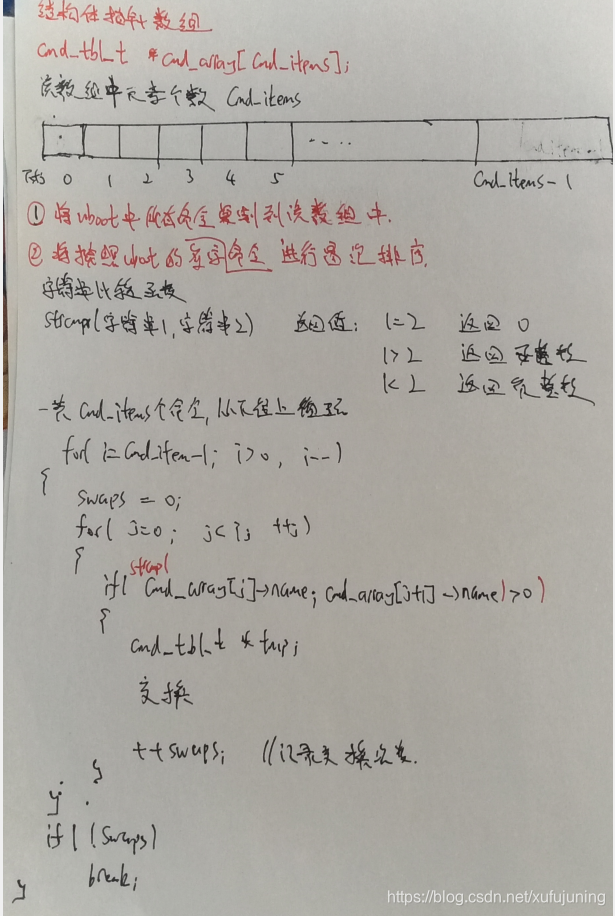 结构体指针数组
cmd_tbl_t *cmd_array[cmd_items];
该数组中元素个数 cmd_items
....
下标 0 1 2 3 4 5 cmd_items-1
① 将uboot中所有命令复制到该数组中.
② 将按照uboot的 名字命令 进行冒泡排序.
字符串比较函数
strcmp(字符串1,字符串2) 返回值: 1=2 返回 0
1>2 返回 正整数
1<2 返回 负整数
一共 cmd_items个命令,从下往上
for( i=cmd_item-1; i>0, i--)
{
swaps = 0;
for( j=0; j<i; ++j)
{
if( strcmp( cmd_array[j]->name; cmd_array[j+1]->name)>0)
{
cmd_tbl_t *tmp;
交换
++swaps; //记录交换次数.
}
}
if(!swaps)
break;
}
https://blog.csdn.net/xufujuning